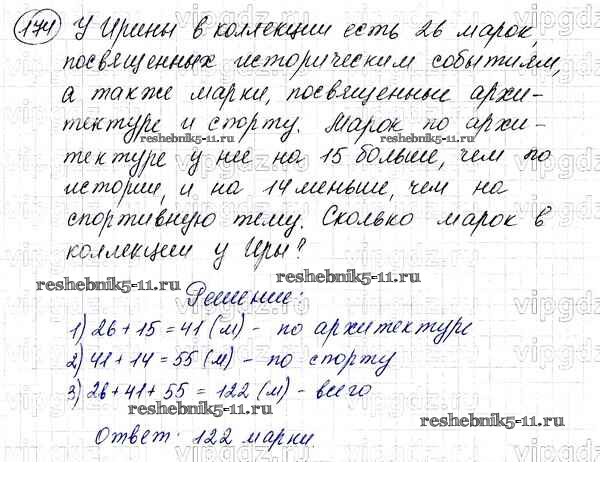 174 У Ирины в коллекции есть 26 марок,
посвященных историческим событиям,
а также марки, посвященные архи-
тектуре и спорту. Марок по архи-
reshebnik5-11.ru
reshebnik5-11.ru
тектуре у нее на 15 больше, чем по
истории, и на 14 меньше, чем на
спортивную тему. Сколько марок в
коллекции у Иры?
reshebnik5-11.ru
reshebnik5-11.ru
Решение:
1) 26 + 15 = 41 (м) - по архитектуре
2) 41 + 14 = 55 (м) - по спорту
3) 26 + 41 + 55 = 122 (м) - всего
reshebnik5-11.ru
reshebnik5-11.ru
Ответ: 122 марки
vipgdz.ru